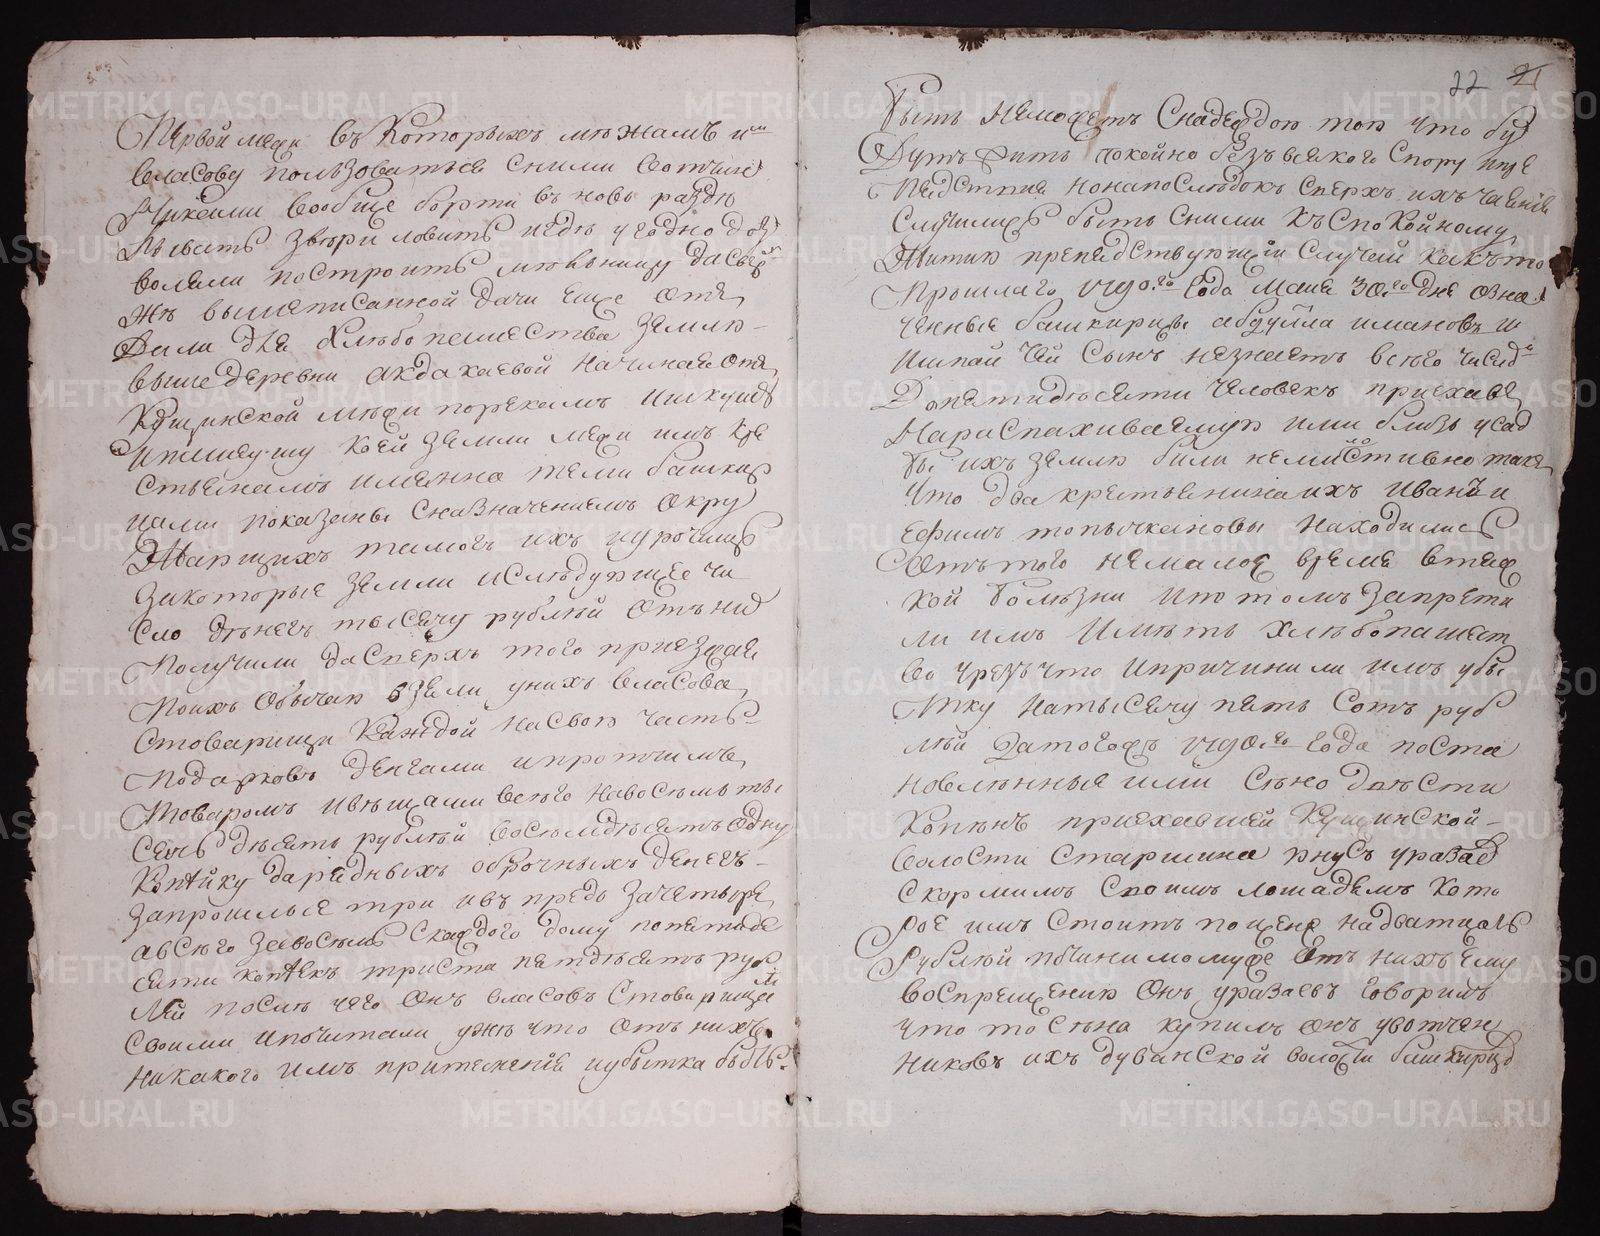 Первой межи въ Которыхъ межамъ и
власову пользоватьса сними вотчин
Никами вообще борти въ новь раздѣ
Лывать звѣри ловить игдѣ угодно доз
волали построить мѣлницу дасвер
Жъ вышеписанной дачи еще отв
Дали для Хлѣбопашества землю
выше деревни акдакаевой начиная отъ
Кущинской межи порекамъ
Коей земли межи имъ Кре
стьянамъ именно теми башкир
цами показаны сназначениемъ окру
Жающихъ тамогъ ихъ иурочищъ
Закоторые земли ислѣдующее чи
сло дѣнегъ тысячу рублѣй отъ ниа
Получили дасверхъ того приезжая
Поихъ обычаю взяли унихъ власова
стоварищи каждой насвою часть
подарковъ денгами ипротчимъ
Товаромъ ивещами всего навосемь ты
сячь дѣсять рублѣй восемдѣсятъ одну
Копѣйку дарядныхъ оброчныхъ денегъ
Запрошлые три ивъ предь зачетыре
авсего засемь скаждого дому попятиде
сяти копѣекъ триста пятдѣсятъ руб
Лей послѣ чего онъ власовъ Стоварищи
своими ипочитали ужѣ что отъ нихъ
никакого имъ притеснения иубытка быть
22 21
Быть неможетъ Снадеждою тою что бу
Дутъ жить покойно безъ всякого спору ипре
Пядствия нонапослѣдокъ сверхъ ихъ чаяния
Случились быть сними къ спокойному
Житию препядствующии случаи какъ то
Прошлаго 1790.го года маия 30.го дня озна
ченные башкирцы абдулла имановъ и
ишпай чей сынъ незнаетъ всего числа
До пятидесяти человекъ приехавъ
Нараспахиваемую ими близъ усад
бы ихъ землю били немилостивно такъ
что два крестьянина ихъ иванъ и
ефимъ топычкановы находились
отътого немалое время втяж
кой болѣзни ипотомъ запрети
ли имъ имѣть хлѣбопашест
во чрезъ что ипричинили имъ убы
тку натысячу пять сотъ руб
лѣй Датогожъ 1790.го года поста
новленныя ими сѣно двѣсти
Копенъ приехавшей Кущинской
Волости старшина юнусъ уразаев
скормилъ своимъ лошадямъ кото
рое имъ стоитъ поцене надватцать
Рублѣй починимомуже отъ нихъ ему
воспрещению онъ уразаевъ говорилъ
что то сѣна купилъ онъ увотчин
никовъ ихъ дуванской волости башкирцов